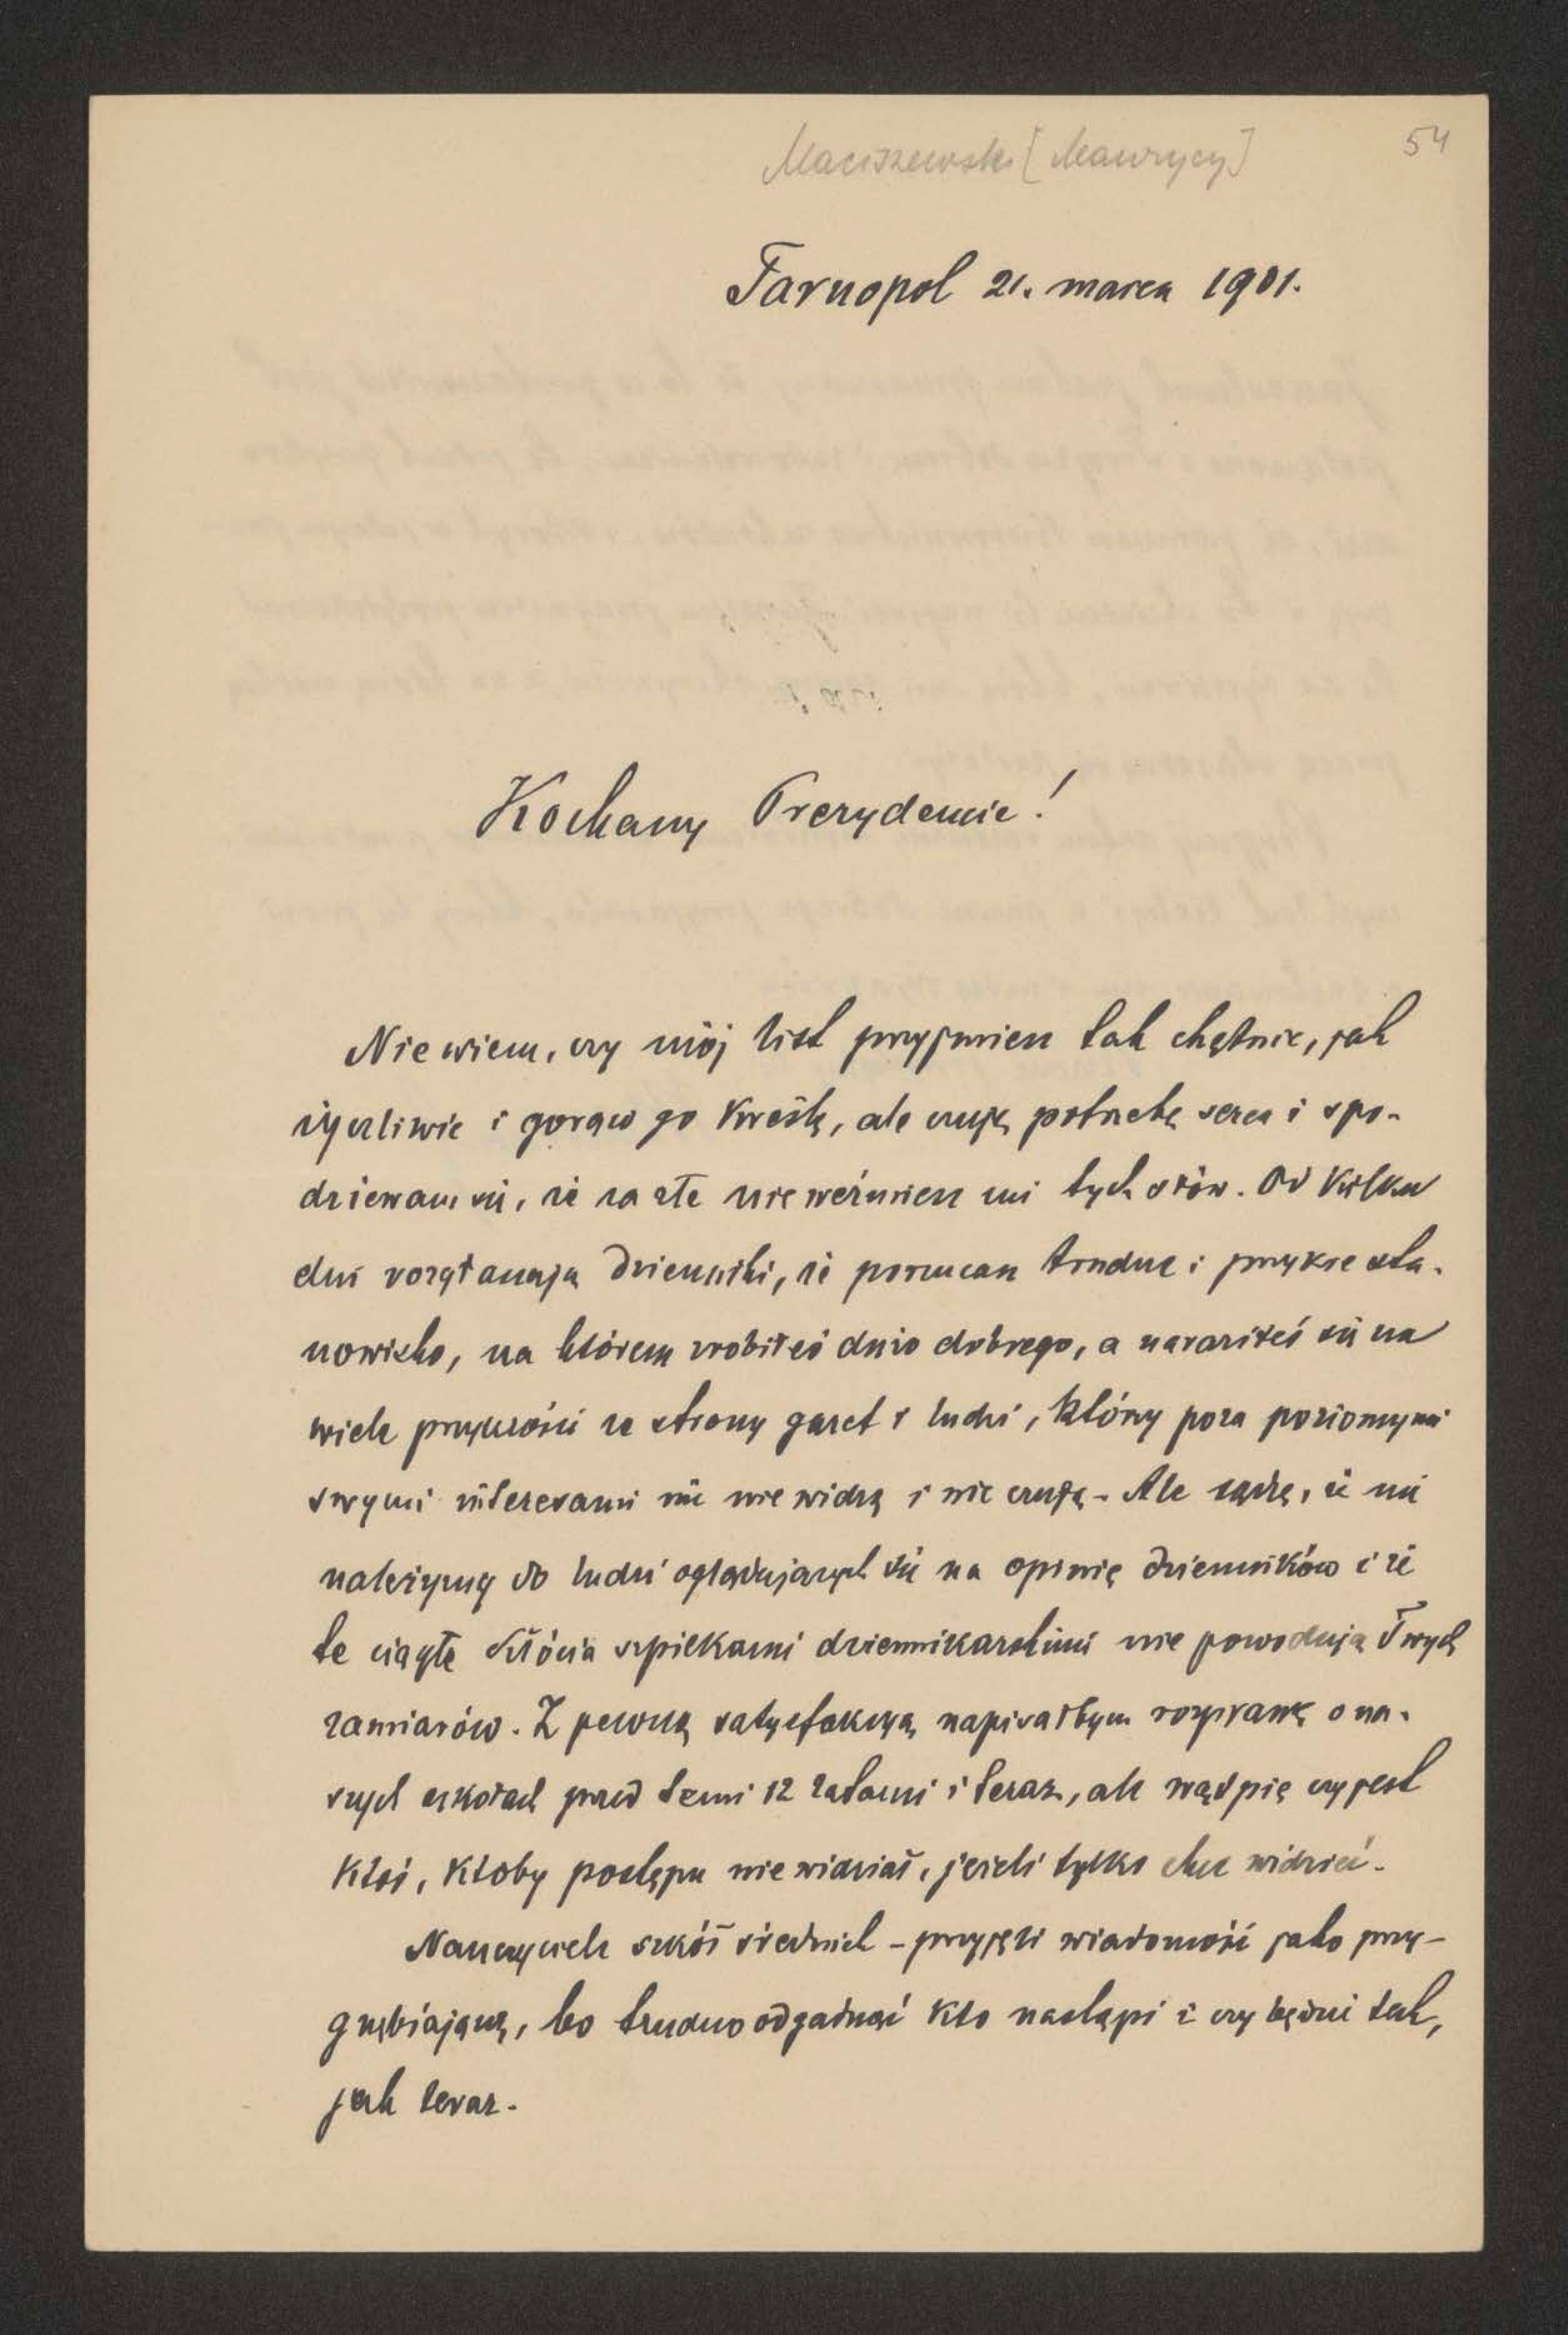 Maciszewski [Maurycy]
54
Tarnopol 21. marca 1901.
Kochany Prezydencie!
Nie wiem, czy mój list przyjmiesz tak chętnie, jak
życzliwie i gorąco go kreślę, ale czuję potrzebę serca i spo-
dziewam się, że za złe nie weźmiesz mi tych słów. Od kilku
dni rozgłaszają dzienniki, że porzucasz trudne i przykre sta-
nowisko, na którem zrobiłeś dużo dobrego, a naraziłeś się na
wiele przykrości ze strony gazet i ludzi, którzy poza poziomymi
swymi interesami nic nie widzą i nie czują. Ale sądzę, że nie
należymy do ludzi oglądających się na opinię dzienników i że
te ciągłe kłócia szpilkami dziennikarskimi nie powodują Twych
zamiarów. Z pewną satysfakcyą napisałbym rozprawę o na-
szych szkołach przed temi 12 latami i teraz, ale wątpię czy jest
ktoś, ktoby postępu nie widział, jeżeli tylko chce widzieć.
Nauczyciele szkół średnich – przyjęli wiadomość jako przy-
gnębiającą, bo trudno odgadnąć kto nastąpi i czy będzie tak,
jak teraz.